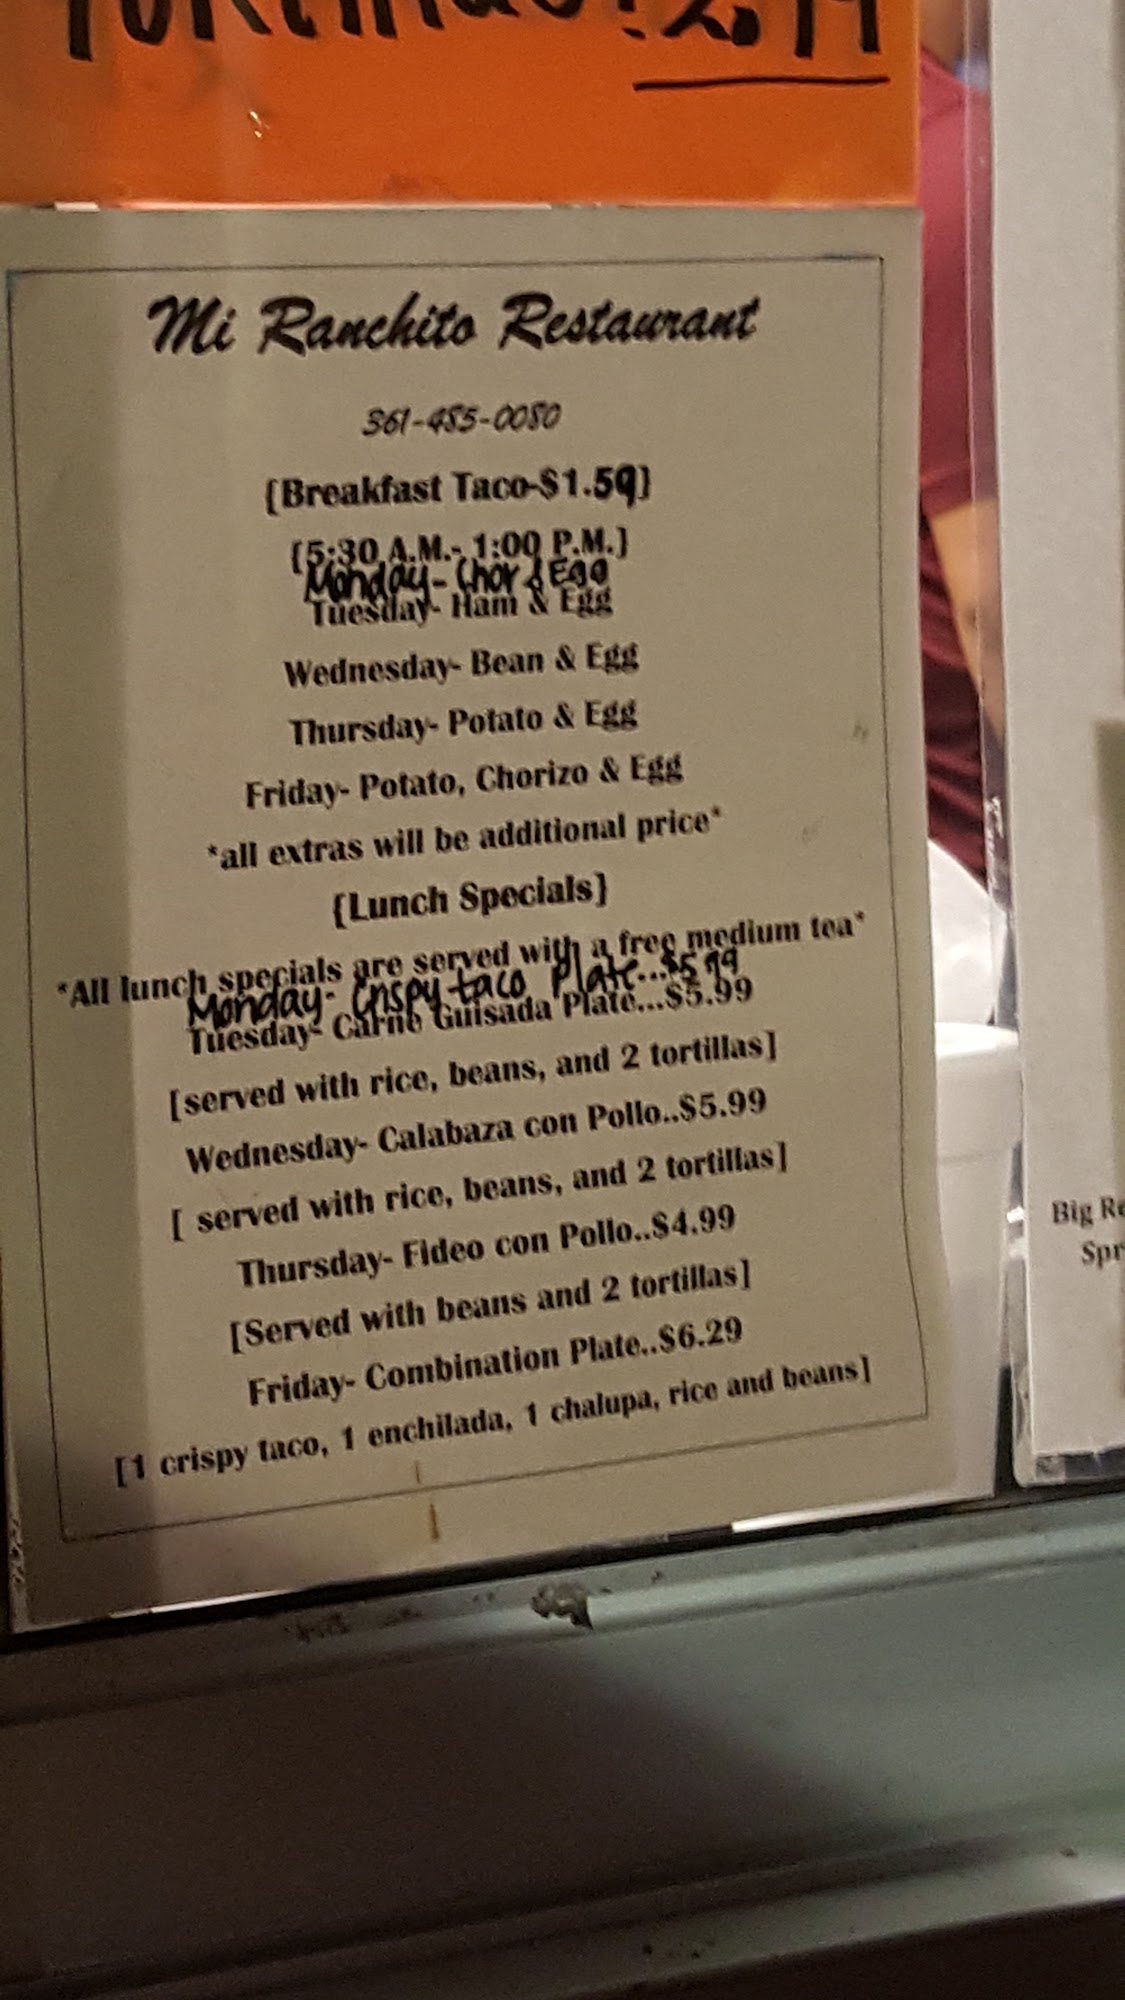 Mi Ranchito Restaurant
361-485-0080
[Breakfast Taco-$1.59]
[5:30 A.M.- 1:00 P.M.]
Monday- Chor & Egg
Tuesday- Ham & Egg
Wednesday- Bean & Egg
Thursday- Potato & Egg
Friday- Potato, Chorizo & Egg
*all extras will be additional price*
[Lunch Specials]
*All lunch specials are served with a free medium tea*
Monday- Crispy taco Plate...$5.99
Tuesday- Carne Guisada Plate...$5.99
[served with rice, beans, and 2 tortillas]
Wednesday- Calabaza con Pollo..$5.99
[ served with rice, beans, and 2 tortillas]
Thursday- Fideo con Pollo..$4.99
[Served with beans and 2 tortillas]
Friday- Combination Plate..$6.29
[1 crispy taco, 1 enchilada, 1 chalupa, rice and beans]
Big